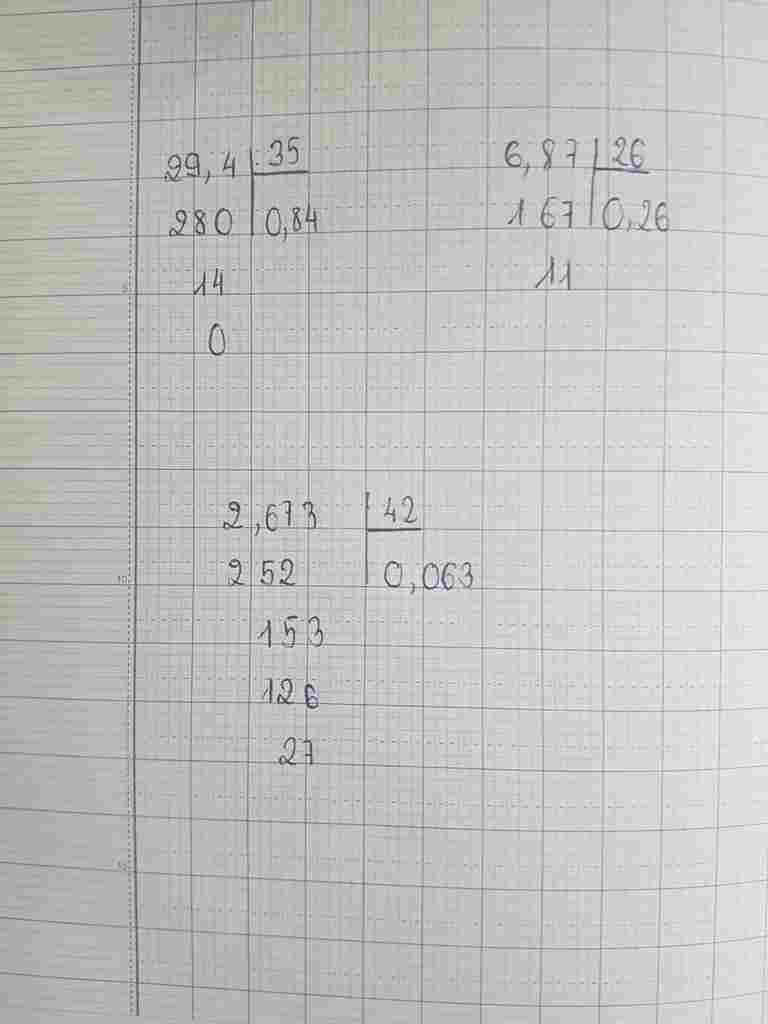 29,4 35
280 0,84
14
0
6,87 26
167 0,26
11
2,673 42
252 0,063
153
126
27